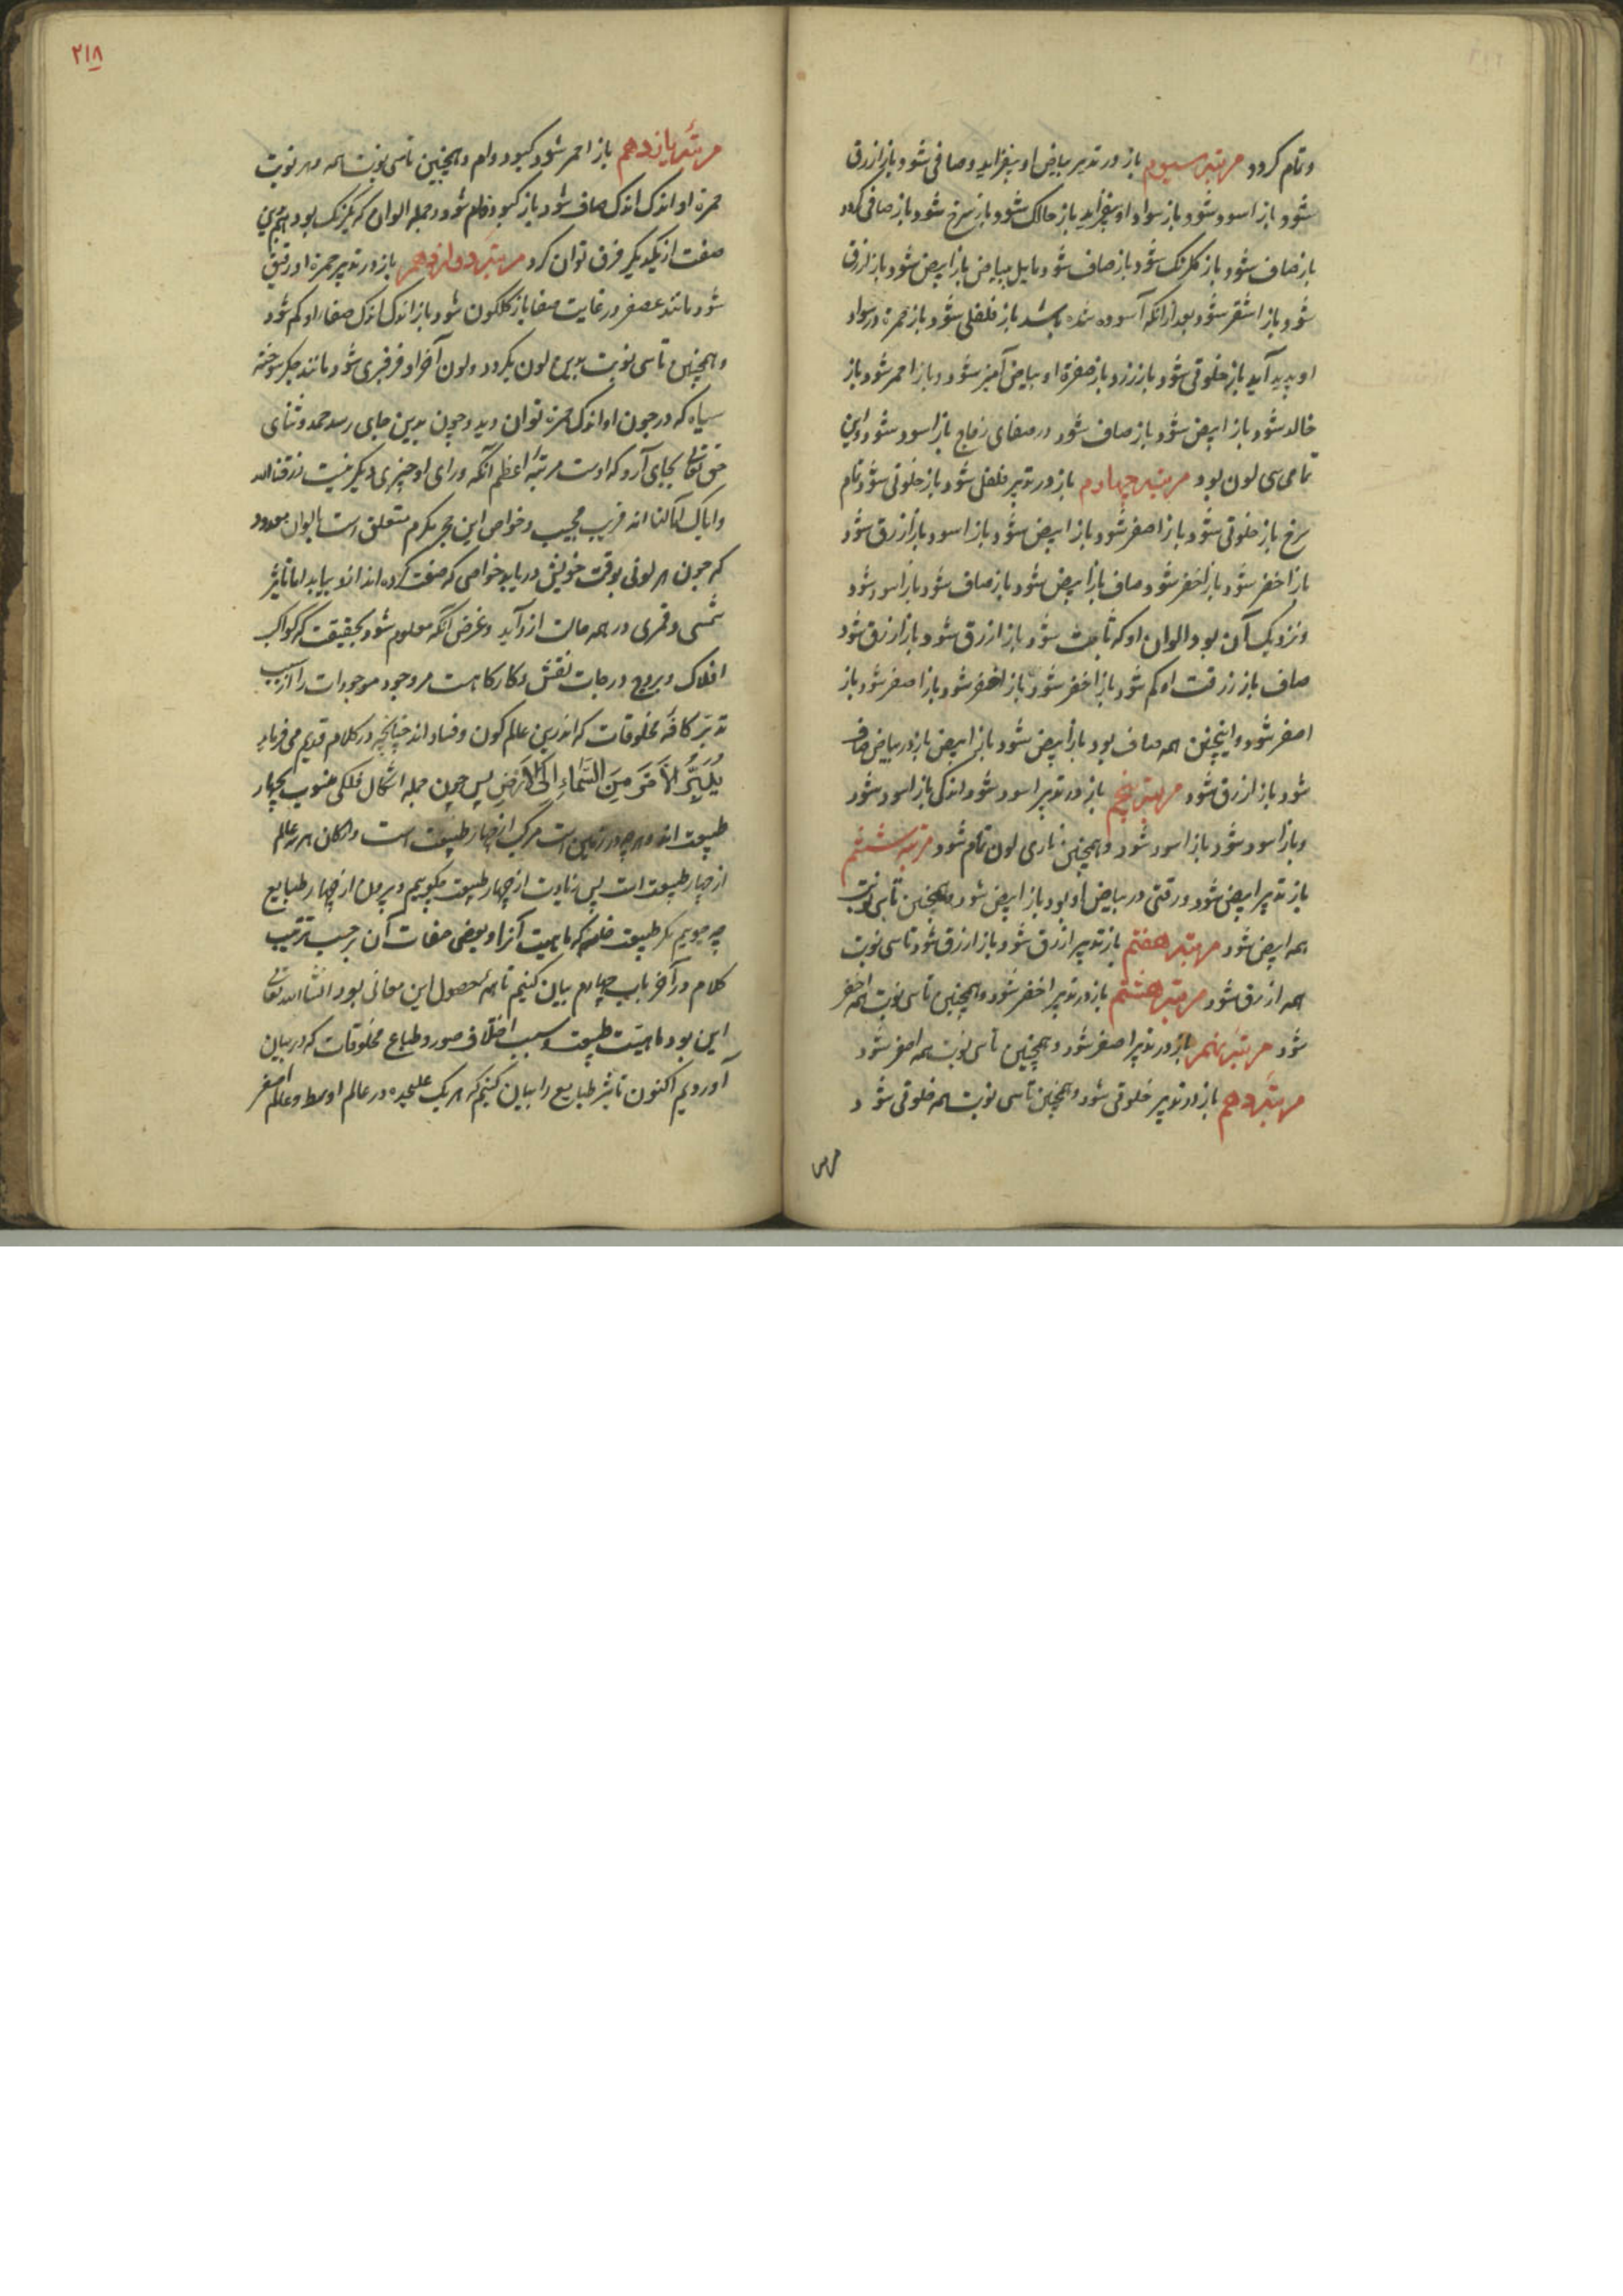 وتمام کردد مرتبه سیوم باز در تدبیر بیاض او بیفزاید وصافی شود وباز ازرق
شود باز اسود شود باز سواد او بیفزاید باز حالک شود باز سرخ شود باز صافی کردد
باز صاف شود باز کلرنک شود باز صاف شود مایل ببیاض باز ابیض شود باز ازرق
شود باز اشقر شود بعد ازانکه آسوده شده باشد باز فلفلی شود باز حمرة در سواد
او پدید آید باز خلوقی شود باز زرد باز صفرة او ببیاض آمیز شود وباز احمر شود باز
خالد شود باز ابیض شود باز صاف شود در صفای زجاج باز اسود شود واین
تمامی سی لون بود مرتبه چهارم باز در تدبیر فلفلی شود باز خلوقی شود تمام
سرخ باز خلوقی شود باز اصفر شود باز ابیض شود باز اسود باز ازرق شود
باز اخضر شود باز اخضر شود صاف باز ابیض شود باز صاف شود باز اسود شود
ونزدیک آن بود الوان او که ثابت شود باز ازرق شود باز ازرق شود
صاف باز زرقت او کم شود باز اخضر شود باز اخضر شود باز اصفر شود باز
اصفر شود واینچنین همه صاف بود باز ابیض شود باز ابیض باز در بیاض صاف
شود باز ازرق شود مرتبه پنجم باز در تدبیر اسود شود اندکی باز اسود شود
وباز اسود شود باز اسود شود وهمچنین تا سی لون تمام شود مرتبه ششم
باز تدبیر ابیض شود ورقتی در بیاض او بود باز ابیض شود وهمچنین تا سی نوبت
همه ابیض شود مرتبه هفتم باز تدبیر ازرق شود باز ازرق شود تا سی نوبت
همه ازرق شود مرتبه هشتم باز در تدبیر اخضر شود وهمچنین تا سی نوبت همه اخضر
شود مرتبه نهم باز در تدبیر اصفر شود وهمچنین تا سی نوبت همه اصفر شود
مرتبه دهم باز در تدبیر خلوقی شود وهمچنین تا سی نوبت همه خلوقی شود
۲۱۸
مرتبه یازدهم باز احمر شود کبود وام وهمچنین تا سی نوبت همه وهر نوبت
حمرة او اندک اندک صاف شود باز کبود فام شود در جمله الوان که یکرنک بود بهمین
صفت از یکدیکر فرق توان کرد مرتبه دوازدهم باز در تدبیر حمرة او رقیق
شود مانند عصفر در غایت صفا باز کلکون شود باز اندک اندک صفا او کم شود
وهمچنین تا سی نوبت بدین لون بکردد ولون آخر او فرفیری شود مانند جکر سوخته
سیاه که در جون او اندک حمرة توان دید وچون بدین جای رسد حمد وثنای
حق تعالی بجای آرد که اوست مرتبه اعظم انکه ورای او چیزی دیکر نیست رزقنا الله
وایاک اکالنا انه قریب مجیب وخواص این حجر مکرم متعلق است بالوان معدود
که چون هر لونی بوقت خویش دریابد خواصی که صفت کرده اند ازو بیابد اما تاثیر
شمسی وقمری در همه حالت ازو آید وغرض آنکه معلوم شود بحقیقت که کواکب
افلاک وبروج ودرجات نقش وکارکاهست مر وجود موجودات را از سبب
تدبیر کافه مخلوقات که اندرین عالم کون وفساد اند چنانچه در کلام قدیم می فرماید
یُدَبِّرُ الأَمْرَ مِنَ السَّمَاءِ اِلَی الأَرْضِ پس چون جمله اشکال فلکی منسوب بچهار
طبیعت اند وهر چه در زمین است مرکب از چهار طبیعت است وارکان هر سه عالم
از چهار طبیعت است پس زیادت از چهار طبیعت نکوییم وبیرون از چهار طبایع
چه جوییم مکر طبیعت خامسه که ماهیت آنرا وبعضی صفات آن برحسب ترتیب
کلام در آخر باب چهارم بیان کنیم تا همه محصول این معانی بود انشاالله تعالی
این بود ماهیت طبیعت وسبب اختلاف صور وطباع مخلوقات که در بیان
آوردیم اکنون تاثیر طبایع را بیان کنیم که هر یک علیحده در عالم اوسط وعالم اصغر